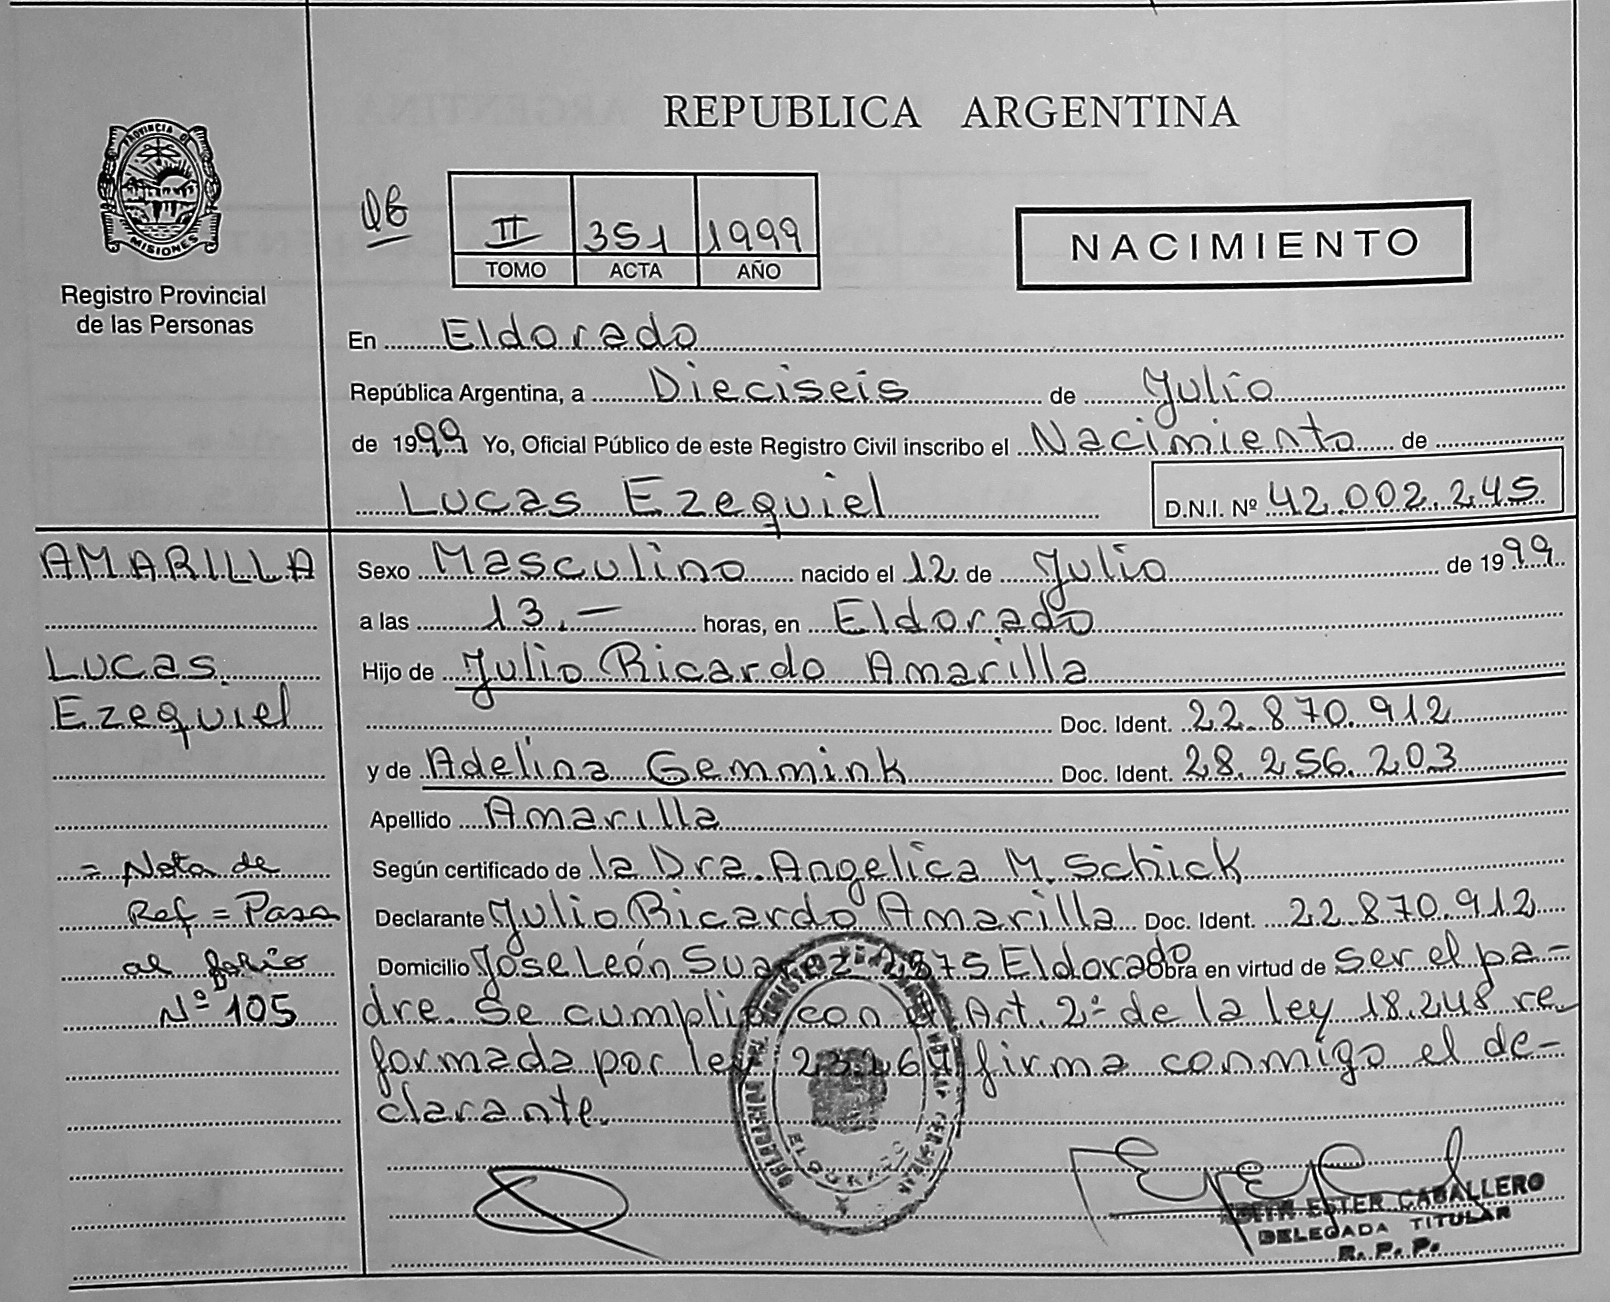 REPUBLICA ARGENTINA
PROVINCIA DE
MISIONES
Registro Provincial
de las Personas
QB
II 351 1999
TOMO ACTA AÑO
NACIMIENTO
En Eldorado
República Argentina, a Dieciseis de Julio
de 1999 Yo, Oficial Público de este Registro Civil inscribo el Nacimiento de
Lucas Ezequiel D.N.I. Nº 42.002.245
AMARILLA
Lucas
Ezequiel
= Nota de
Ref = Pasa
al folio
Nº 105
Sexo Masculino nacido el 12 de Julio de 1999
a las 13.- horas, en Eldorado
Hijo de Julio Ricardo Amarilla
Doc. Ident. 22.870.912
y de Adelina Gemmink Doc. Ident. 28.256.203
Apellido Amarilla
Según certificado de la Dra. Angelica M. Schick
Declarante Julio Ricardo Amarilla Doc. Ident. 22.870.912
Domicilio Jose León Suarez 2875 Eldorado Obra en virtud de ser el pa-
dre. Se cumplio con el Art. 2º de la ley 18.248 re
formada por ley 23.264 firma conmigo el de-
clarante.
ELDORADO
ESTER CABALLERO
DELEGADA TITULAR
R. P. P.